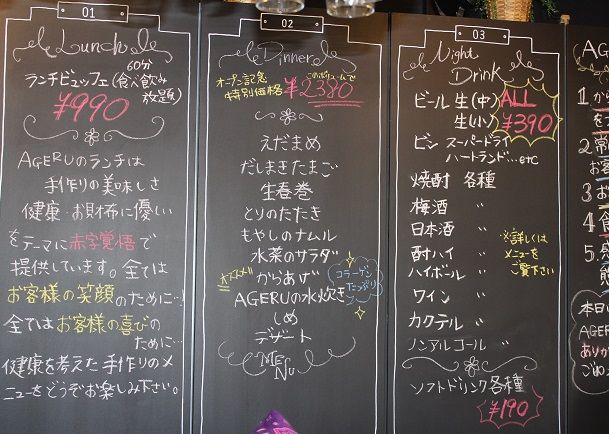 01
Lunch
60分
ランチビュッフェ(食べ飲み放題)
¥990
AGERUのランチは
手作りの美味しさ
健康・お財布に優しい
をテーマに赤字覚悟で
提供しています。全ては
お客様の笑顔のために…
全てはお客様の喜びの
ために…
健康を考えた手作りのメ
ニューをどうぞお楽しみ下さい。
02
Dinner
オープン記念
特別価格
このボリュームで
¥2380
えだまめ
だしまきたまご
生春巻
とりのたたき
もやしのナムル
水菜のサラダ
オススメ!!
からあげ
コラーゲン
たっぷり
AGERUの水炊き
しめ
デザート
MENU
03
Night
Drink
ビール 生(中)
生(小)
ALL
¥390
ビン スーパードライ
ハートランド…etc
焼酎 各種
梅酒 〃
日本酒 〃
酎ハイ 〃
ハイボール 〃
ワイン 〃
カクテル 〃
ノンアルコール 〃
※詳しくは
メニューを
ご覧下さい
ソフトドリンク各種
¥190
AG
1.から
を
2.常
お客
3.お
4.
5.感
本日
AGER
ありが
ごゆ